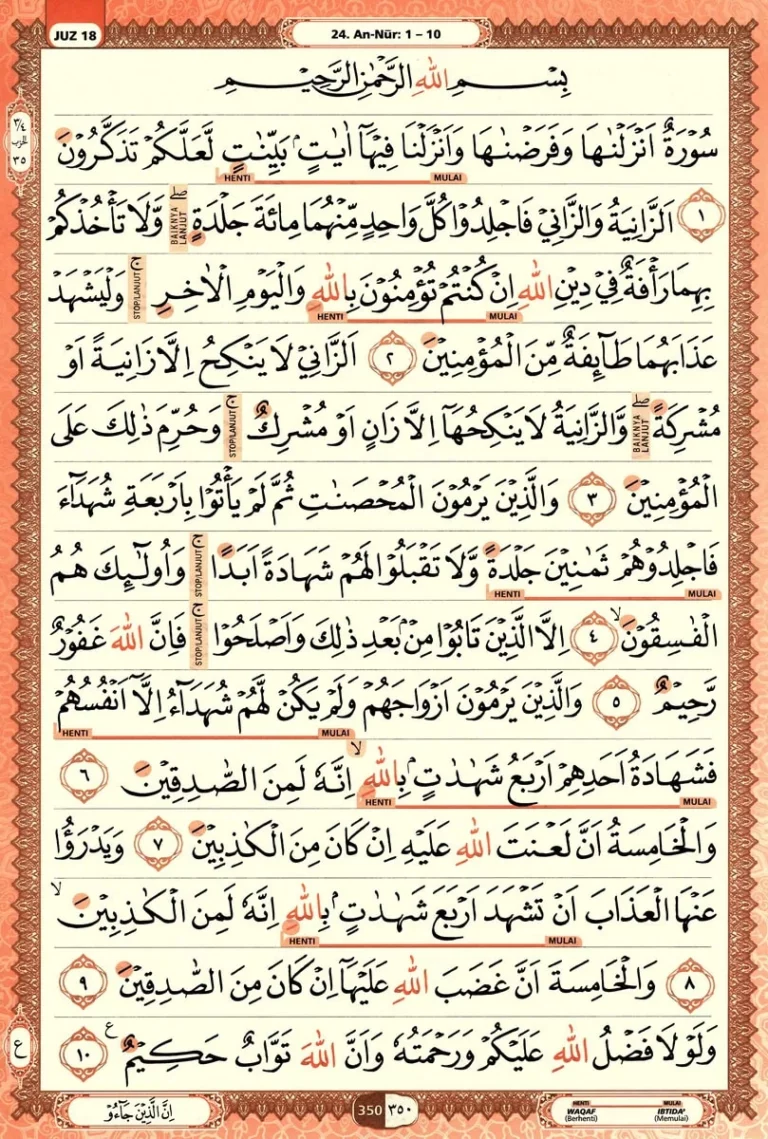 JUZ 18
24. An-Nūr: 1 – 10
بِسْمِ اللّٰهِ الرَّحْمٰنِ الرَّحِيْمِ
سُوْرَةٌ اَنْزَلْنٰهَا وَفَرَضْنٰهَا وَاَنْزَلْنَا فِيْهَآ اٰيٰتٍۢ بَيِّنٰتٍ لَّعَلَّكُمْ تَذَكَّرُوْنَ
HENTI MULAI
١ اَلزَّانِيَةُ وَالزَّانِيْ فَاجْلِدُوْا كُلَّ وَاحِدٍ مِّنْهُمَا مِائَةَ جَلْدَةٍ ۖ BAIKNYA LANJUT وَّلَا تَأْخُذْكُمْ
بِهِمَا رَأْفَةٌ فِيْ دِيْنِ اللّٰهِ اِنْ كُنْتُمْ تُؤْمِنُوْنَ بِاللّٰهِ وَالْيَوْمِ الْاٰخِرِ ۚ STOP/LANJUT وَلْيَشْهَدْ
HENTI MULAI
عَذَابَهُمَا طَاۤىِٕفَةٌ مِّنَ الْمُؤْمِنِيْنَ ٢ اَلزَّانِيْ لَا يَنْكِحُ اِلَّا زَانِيَةً اَوْ
مُشْرِكَةً ۖ BAIKNYA LANJUT وَّالزَّانِيَةُ لَا يَنْكِحُهَآ اِلَّا زَانٍ اَوْ مُشْرِكٌ ۚ STOP/LANJUT وَحُرِّمَ ذٰلِكَ عَلَى
الْمُؤْمِنِيْنَ ٣ وَالَّذِيْنَ يَرْمُوْنَ الْمُحْصَنٰتِ ثُمَّ لَمْ يَأْتُوْا بِاَرْبَعَةِ شُهَدَاۤءَ
فَاجْلِدُوْهُمْ ثَمٰنِيْنَ جَلْدَةً وَّلَا تَقْبَلُوْا لَهُمْ شَهَادَةً اَبَدًا ۚ STOP/LANJUT وَاُولٰۤىِٕكَ هُمُ
HENTI MULAI
الْفٰسِقُوْنَ ۙ ٤ اِلَّا الَّذِيْنَ تَابُوْا مِنْۢ بَعْدِ ذٰلِكَ وَاَصْلَحُوْا ۚ STOP/LANJUT فَاِنَّ اللّٰهَ غَفُوْرٌ
رَّحِيْمٌ ٥ وَالَّذِيْنَ يَرْمُوْنَ اَزْوَاجَهُمْ وَلَمْ يَكُنْ لَّهُمْ شُهَدَاۤءُ اِلَّآ اَنْفُسُهُمْ
HENTI MULAI
فَشَهَادَةُ اَحَدِهِمْ اَرْبَعُ شَهٰدٰتٍۢ بِاللّٰهِ ۙ اِنَّهٗ لَمِنَ الصّٰدِقِيْنَ ٦
HENTI MULAI
وَالْخَامِسَةُ اَنَّ لَعْنَتَ اللّٰهِ عَلَيْهِ اِنْ كَانَ مِنَ الْكٰذِبِيْنَ ٧ وَيَدْرَؤُا
عَنْهَا الْعَذَابَ اَنْ تَشْهَدَ اَرْبَعَ شَهٰدٰتٍۢ بِاللّٰهِ اِنَّهٗ لَمِنَ الْكٰذِبِيْنَ ۙ
HENTI MULAI
٨ وَالْخَامِسَةَ اَنَّ غَضَبَ اللّٰهِ عَلَيْهَآ اِنْ كَانَ مِنَ الصّٰدِقِيْنَ ٩
وَلَوْلَا فَضْلُ اللّٰهِ عَلَيْكُمْ وَرَحْمَتُهٗ وَاَنَّ اللّٰهَ تَوَّابٌ حَكِيْمٌ ࣖ ١٠
٣/٤
الحزب
٣٥
ع
اِنَّ الَّذِيْنَ جَاۤءُوْ
350 ٣٥٠
HENTI MULAI
WAQAF IBTIDA'
(Berhenti) (Memulai)